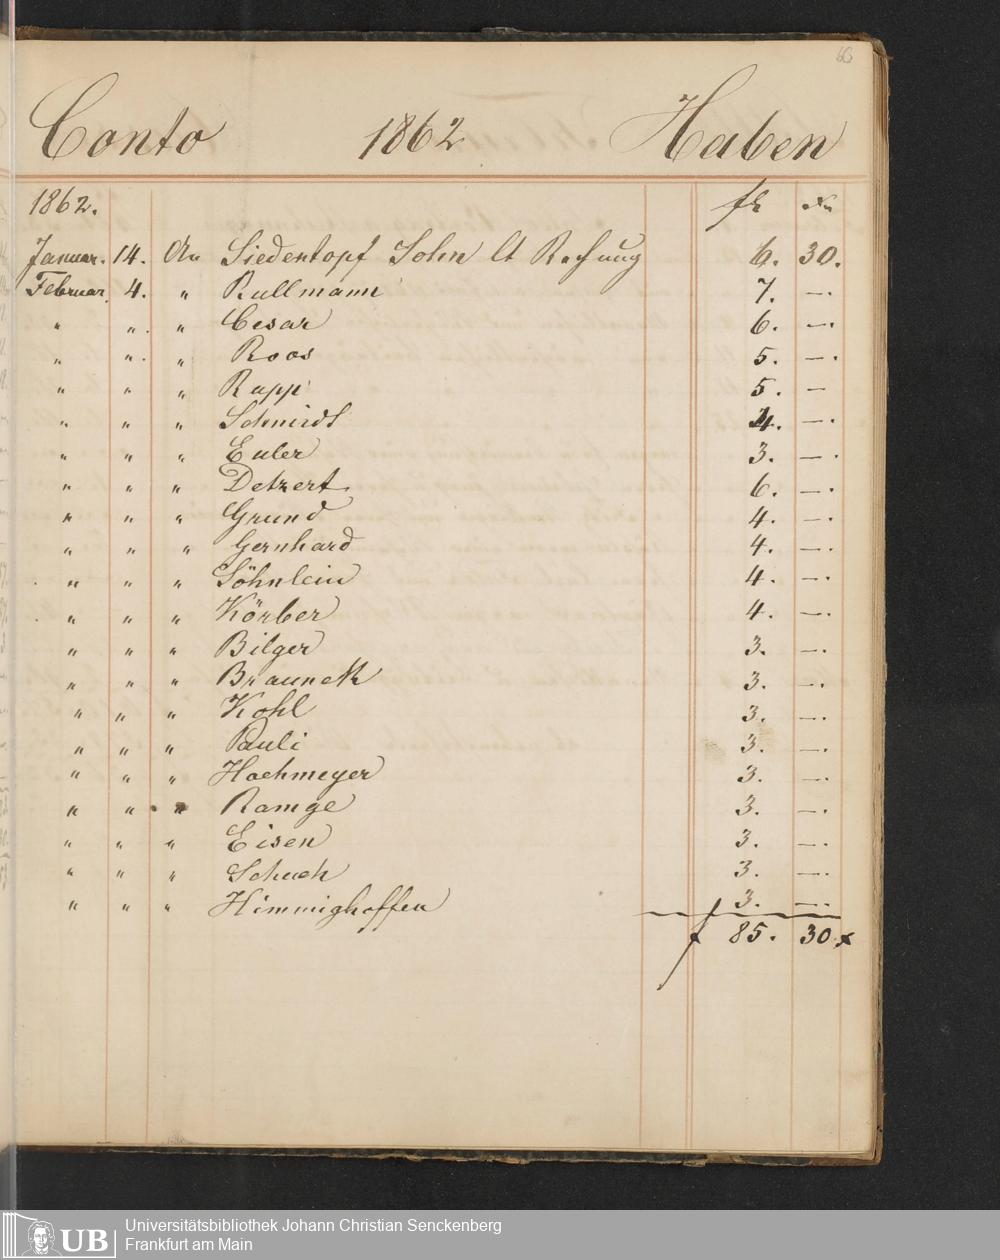 66
Conto 1862 Haben
1862. fl xr
Januar. 14. An Siedentopf Sohn lt Rechnung 6. 30.
Februar. 4. " Rullmann 7. —.
" ". " Cesar 6. —.
" ". " Roos 5. —.
" " " Rapp 5. —
" " " Schmidt 4. —.
" " " Euler 3. —.
" " " Detzert 6. —.
" " " Grund 4. —.
" " " Gernhard 4. —.
" " " Söhnlein 4. —.
" " " Körber 4. —.
" " " Bilger 3. —.
" " " Brauneck 3. —.
" " " Kohl 3. —.
" " " Pauli 3. —.
" " " Hochmeyer 3. —.
" " " Ramge 3. —.
" " " Eisen 3. —.
" " " Schuch 3. —.
" " " Himmighoffen 3. —.
f 85. 30 x
UB Universitätsbibliothek Johann Christian Senckenberg
Frankfurt am Main